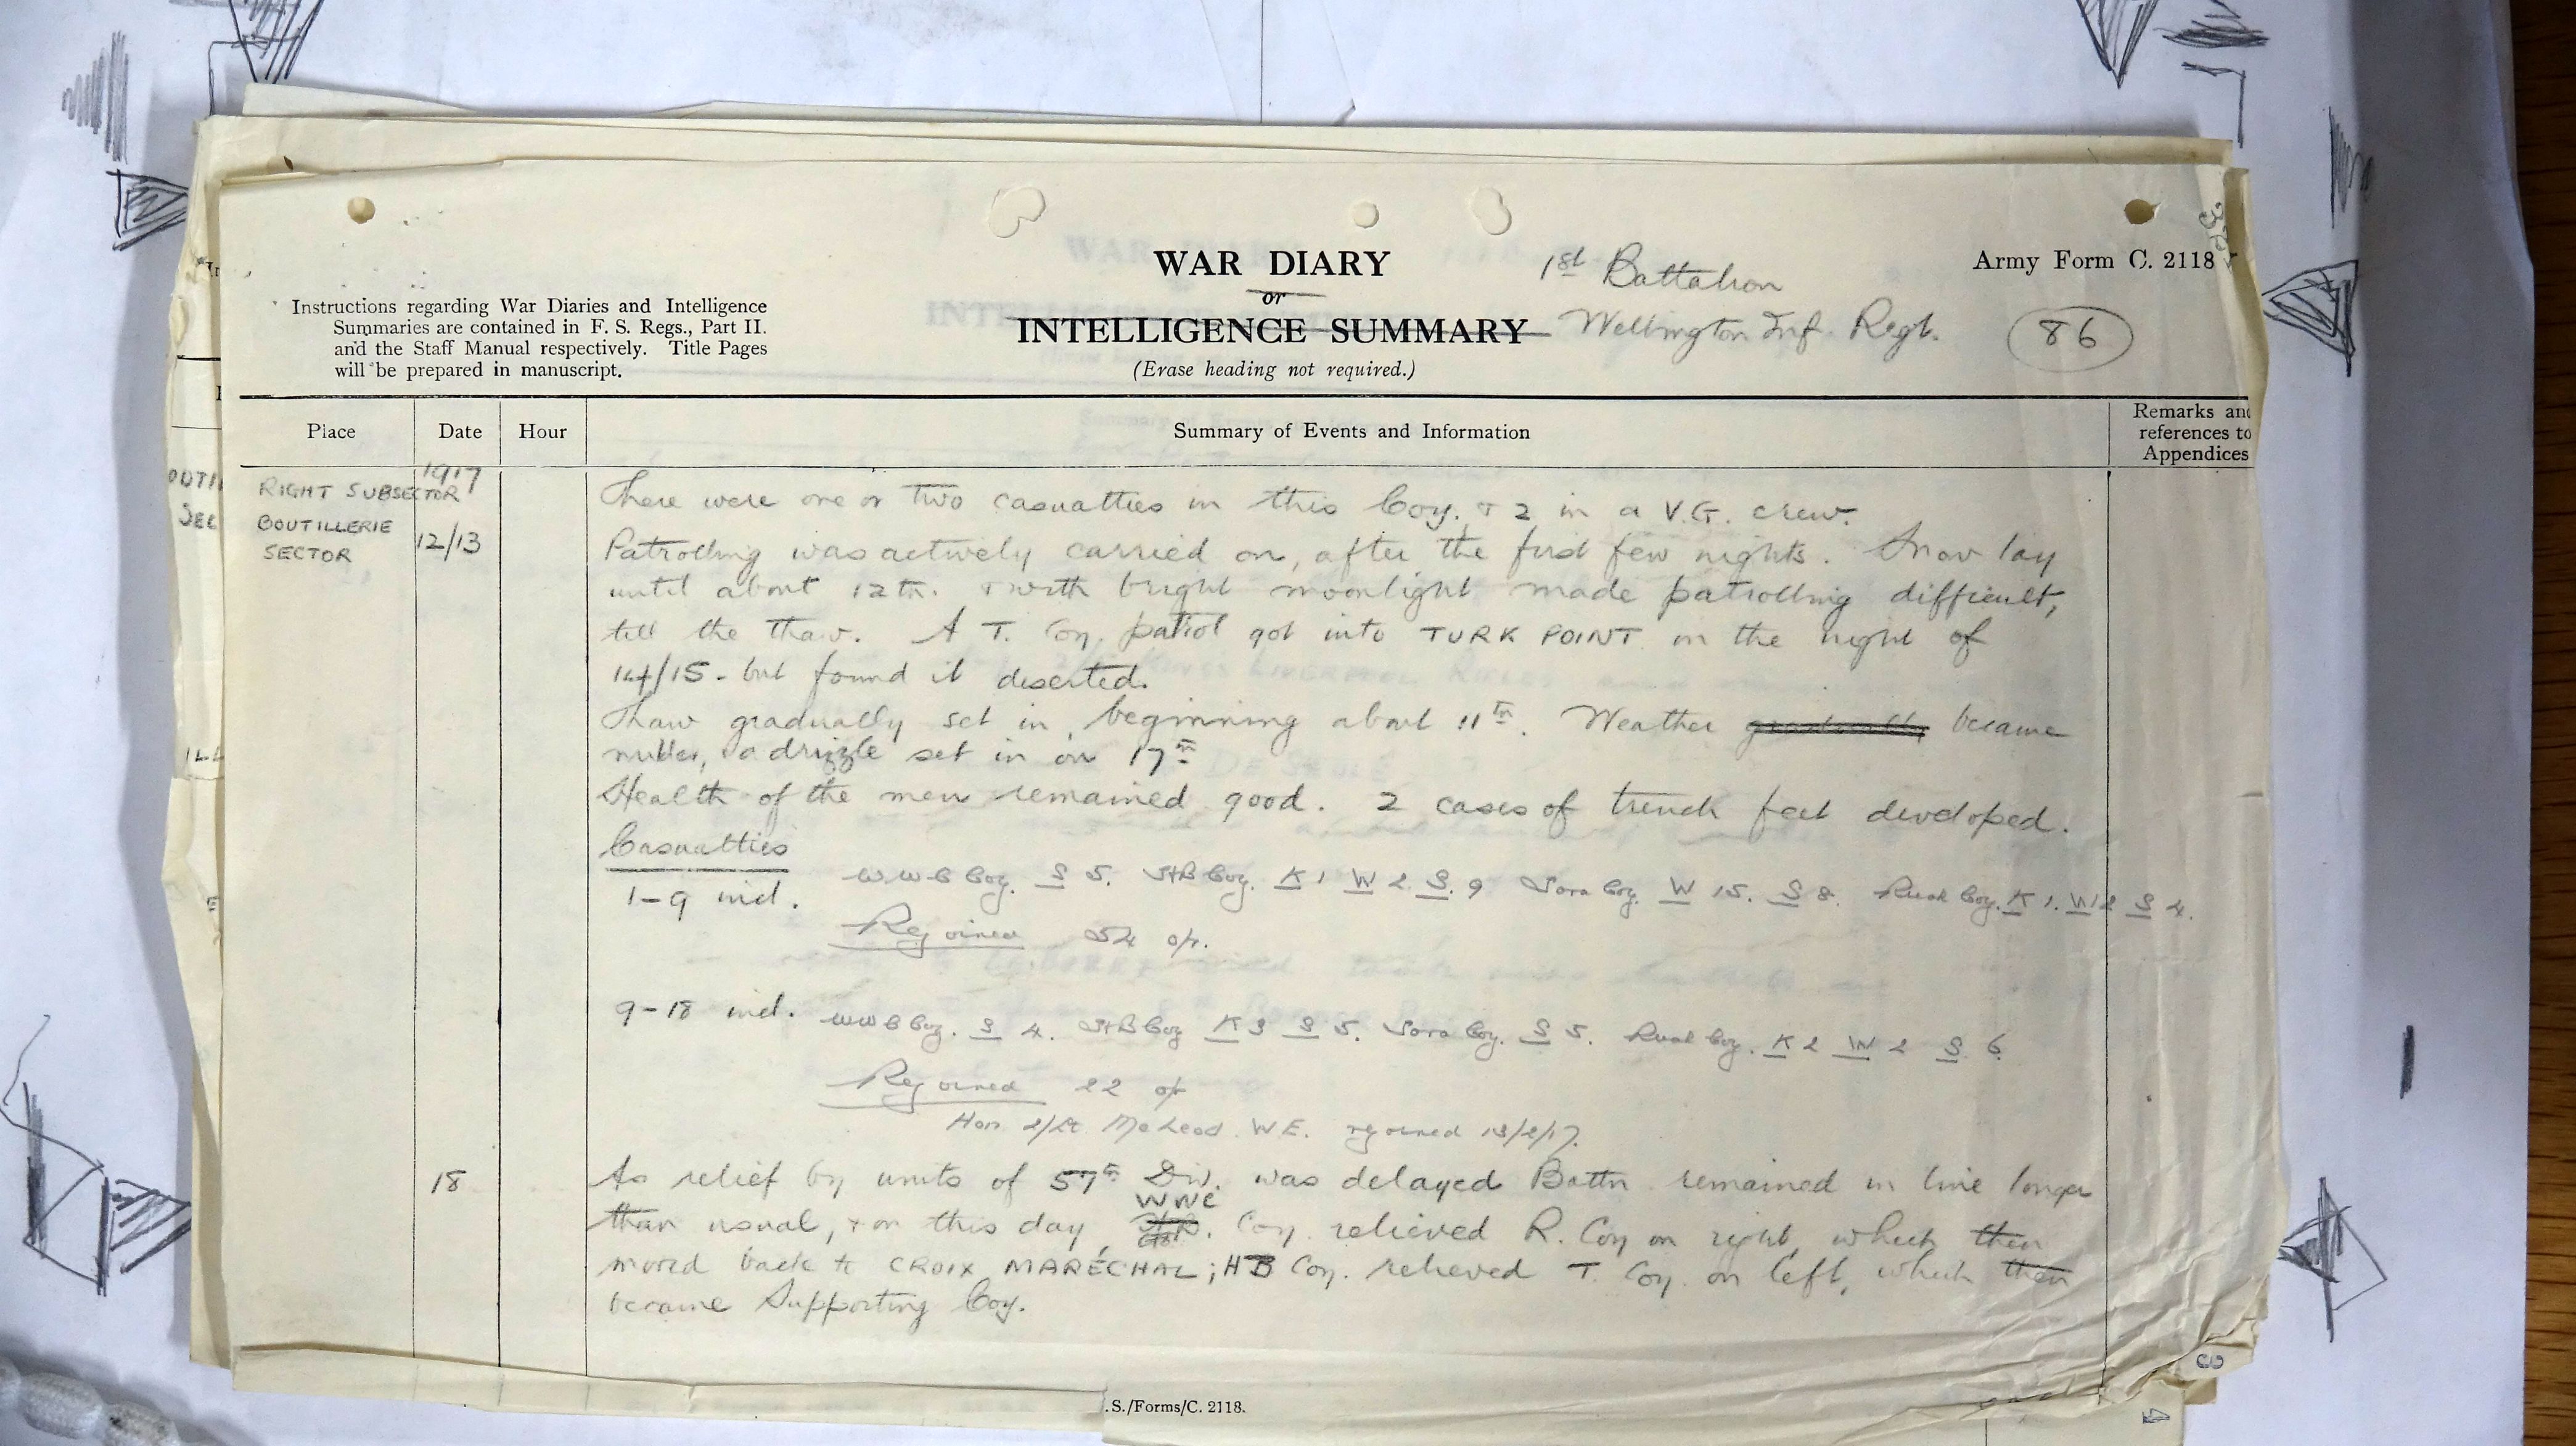 WAR DIARY
or
INTELLIGENCE SUMMARY
(Erase heading not required.)
1st Battalion
Wellington Inf. Regt.
Army Form C. 2118
86
Instructions regarding War Diaries and Intelligence
Summaries are contained in F. S. Regs., Part II.
and the Staff Manual respectively. Title Pages
will be prepared in manuscript.
Place
Date
Hour
Summary of Events and Information
Remarks and
references to
Appendices
1917
RIGHT SUBSECTOR
BOUTILLERIE
SECTOR
12/13
There were one or two casualties in this Coy. & 2 in a V.G. crew.
Patrolling was actively carried on, after the first few nights. Snow lay
until about 12th. & with bright moonlight made patrolling difficult,
till the thaw. A T. Coy. patrol got into TURK POINT on the night of
14/15 - but found it deserted.
Thaw gradually set in, beginning about 11th. Weather gradually became
milder, & a drizzle set in on 17th
Health of the men remained good. 2 cases of trench feet developed.
Casualties
1-9 incl.
WWC Coy. S 5. HB Coy. K 1 W 2 S. 9 Tara Coy. W 15. S 8. Ruah Coy. K 1. W 2 S 4.
Rejoined 54 o/r.
9-18 incl.
WWC Coy. S 4. HB Coy K 3 S 5. Tara Coy. S 5. Ruah Coy. K 2 W 2 S 6
Rejoined 22 o/r
Hon 2/Lt McLeod W E. rejoined 13/2/17.
18
As relief by units of 57th Div. was delayed Battn remained in line longer
than usual, & on this day WWC Coy. relieved R. Coy on right, which then
moved back to CROIX MARÉCHAL; HB Coy. relieved T. Coy. on left, which then
became Supporting Coy.
.S./Forms/C. 2118.